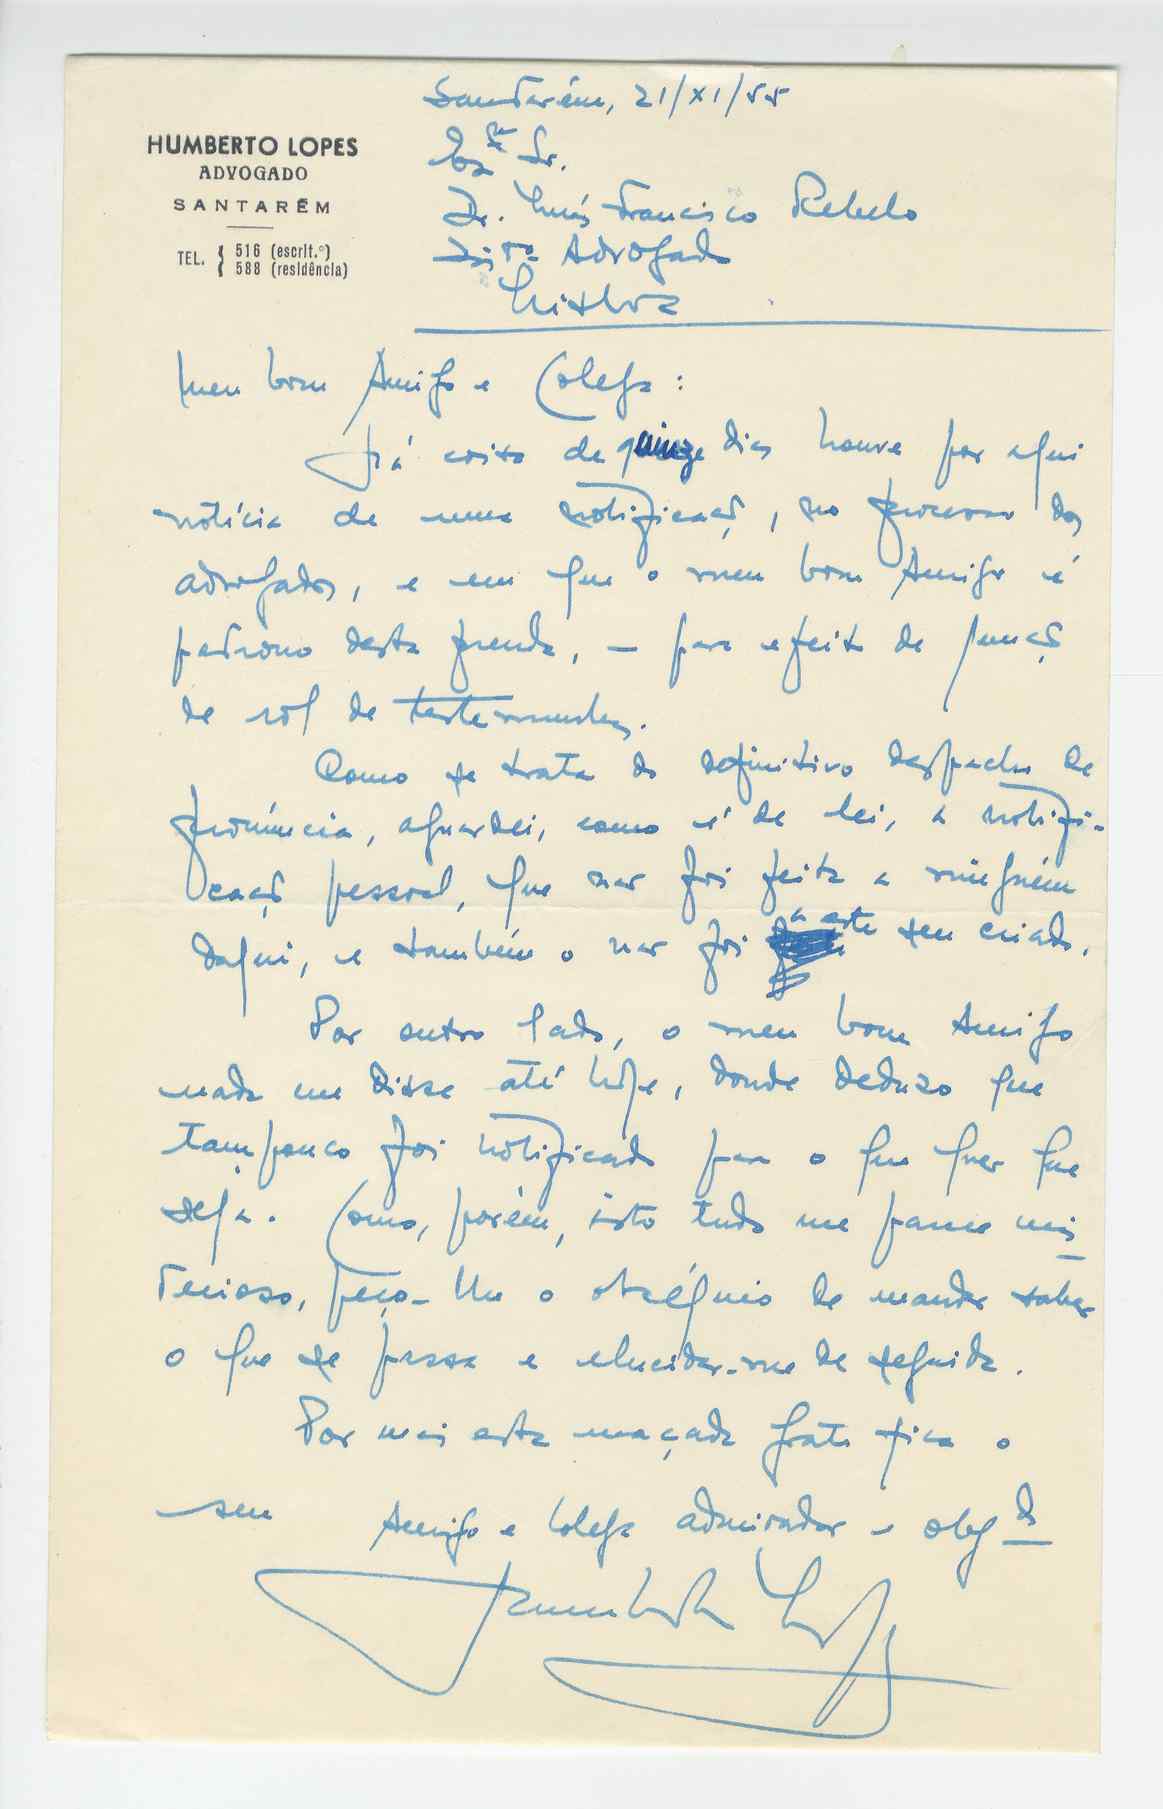 Santarém, 21/XI/55
HUMBERTO LOPES
ADVOGADO
SANTARÉM
TEL. { 516 (escrit.º)
588 (residência)
Exmo Sr.
Dr. Luís Francisco Rebelo
Advogado
Lisboa
Meu bom Amigo e Colega:
Há coisa de quinze dias houve por aqui
notícia de uma notificação, no processo dos
advogados, e em que o meu bom Amigo é
patrono desta prenda, — para efeito de junção
de rol de testemunhas.
Como se trata do definitivo despacho de
pronúncia, aguardei, como é de lei, a notifi-
cação pessoal, que não foi feita a ninguém
daqui, e também o não foi a este seu criado.
Por outro lado, o meu bom Amigo
nada me disse até hoje, donde deduzo que
tampouco foi notificado para o que quer que
seja. Como, porém, isto tudo me parece mis-
terioso, peço-lhe o obséquio de mandar saber
o que se passa e elucidar-me de seguida.
Por mais esta maçada grato fica o
seu Amigo e Colega admirador e obgdo
Humberto Lopes